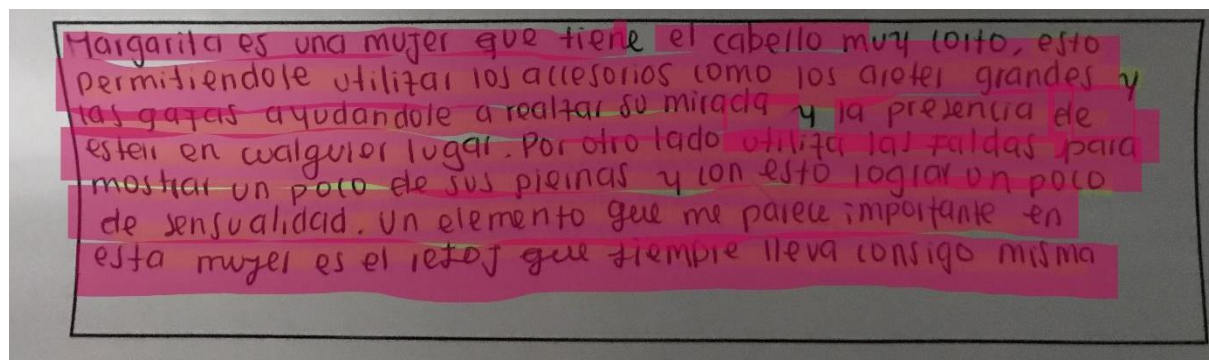 Margarita es una mujer que tiene el cabello muy corto, esto
permitiendole utilizar los accesorios como los aretes grandes y
las gafas ayudandole a realzar su mirada y la presencia de
ester en cualquier lugar. Por otro lado utiliza las faldas para
mostrar un poco de sus piernas y con esto lograr un poco
de sensualidad. Un elemento que me parece importante en
esta mujer es el reloj que siempre lleva consigo misma